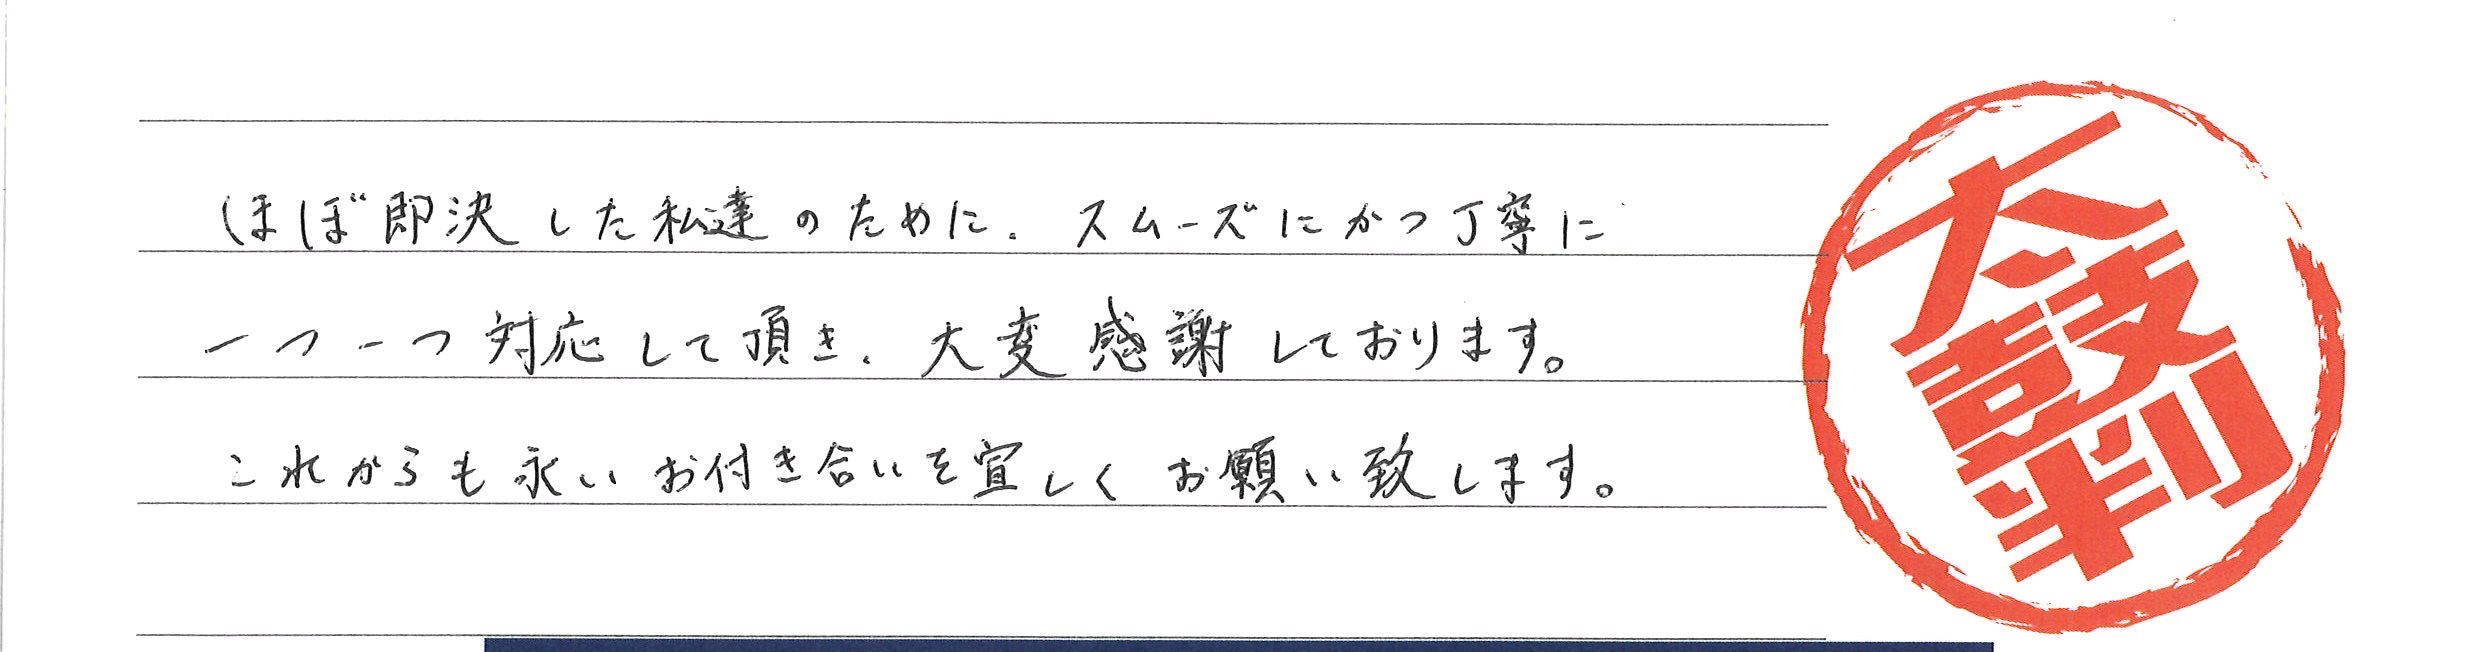 ほぼ即決した私達のために、スムーズにかつ丁寧に
一つ一つ対応して頂き、大変感謝しております。
これからも永いお付き合いを宜しくお願い致します。
太鼓判